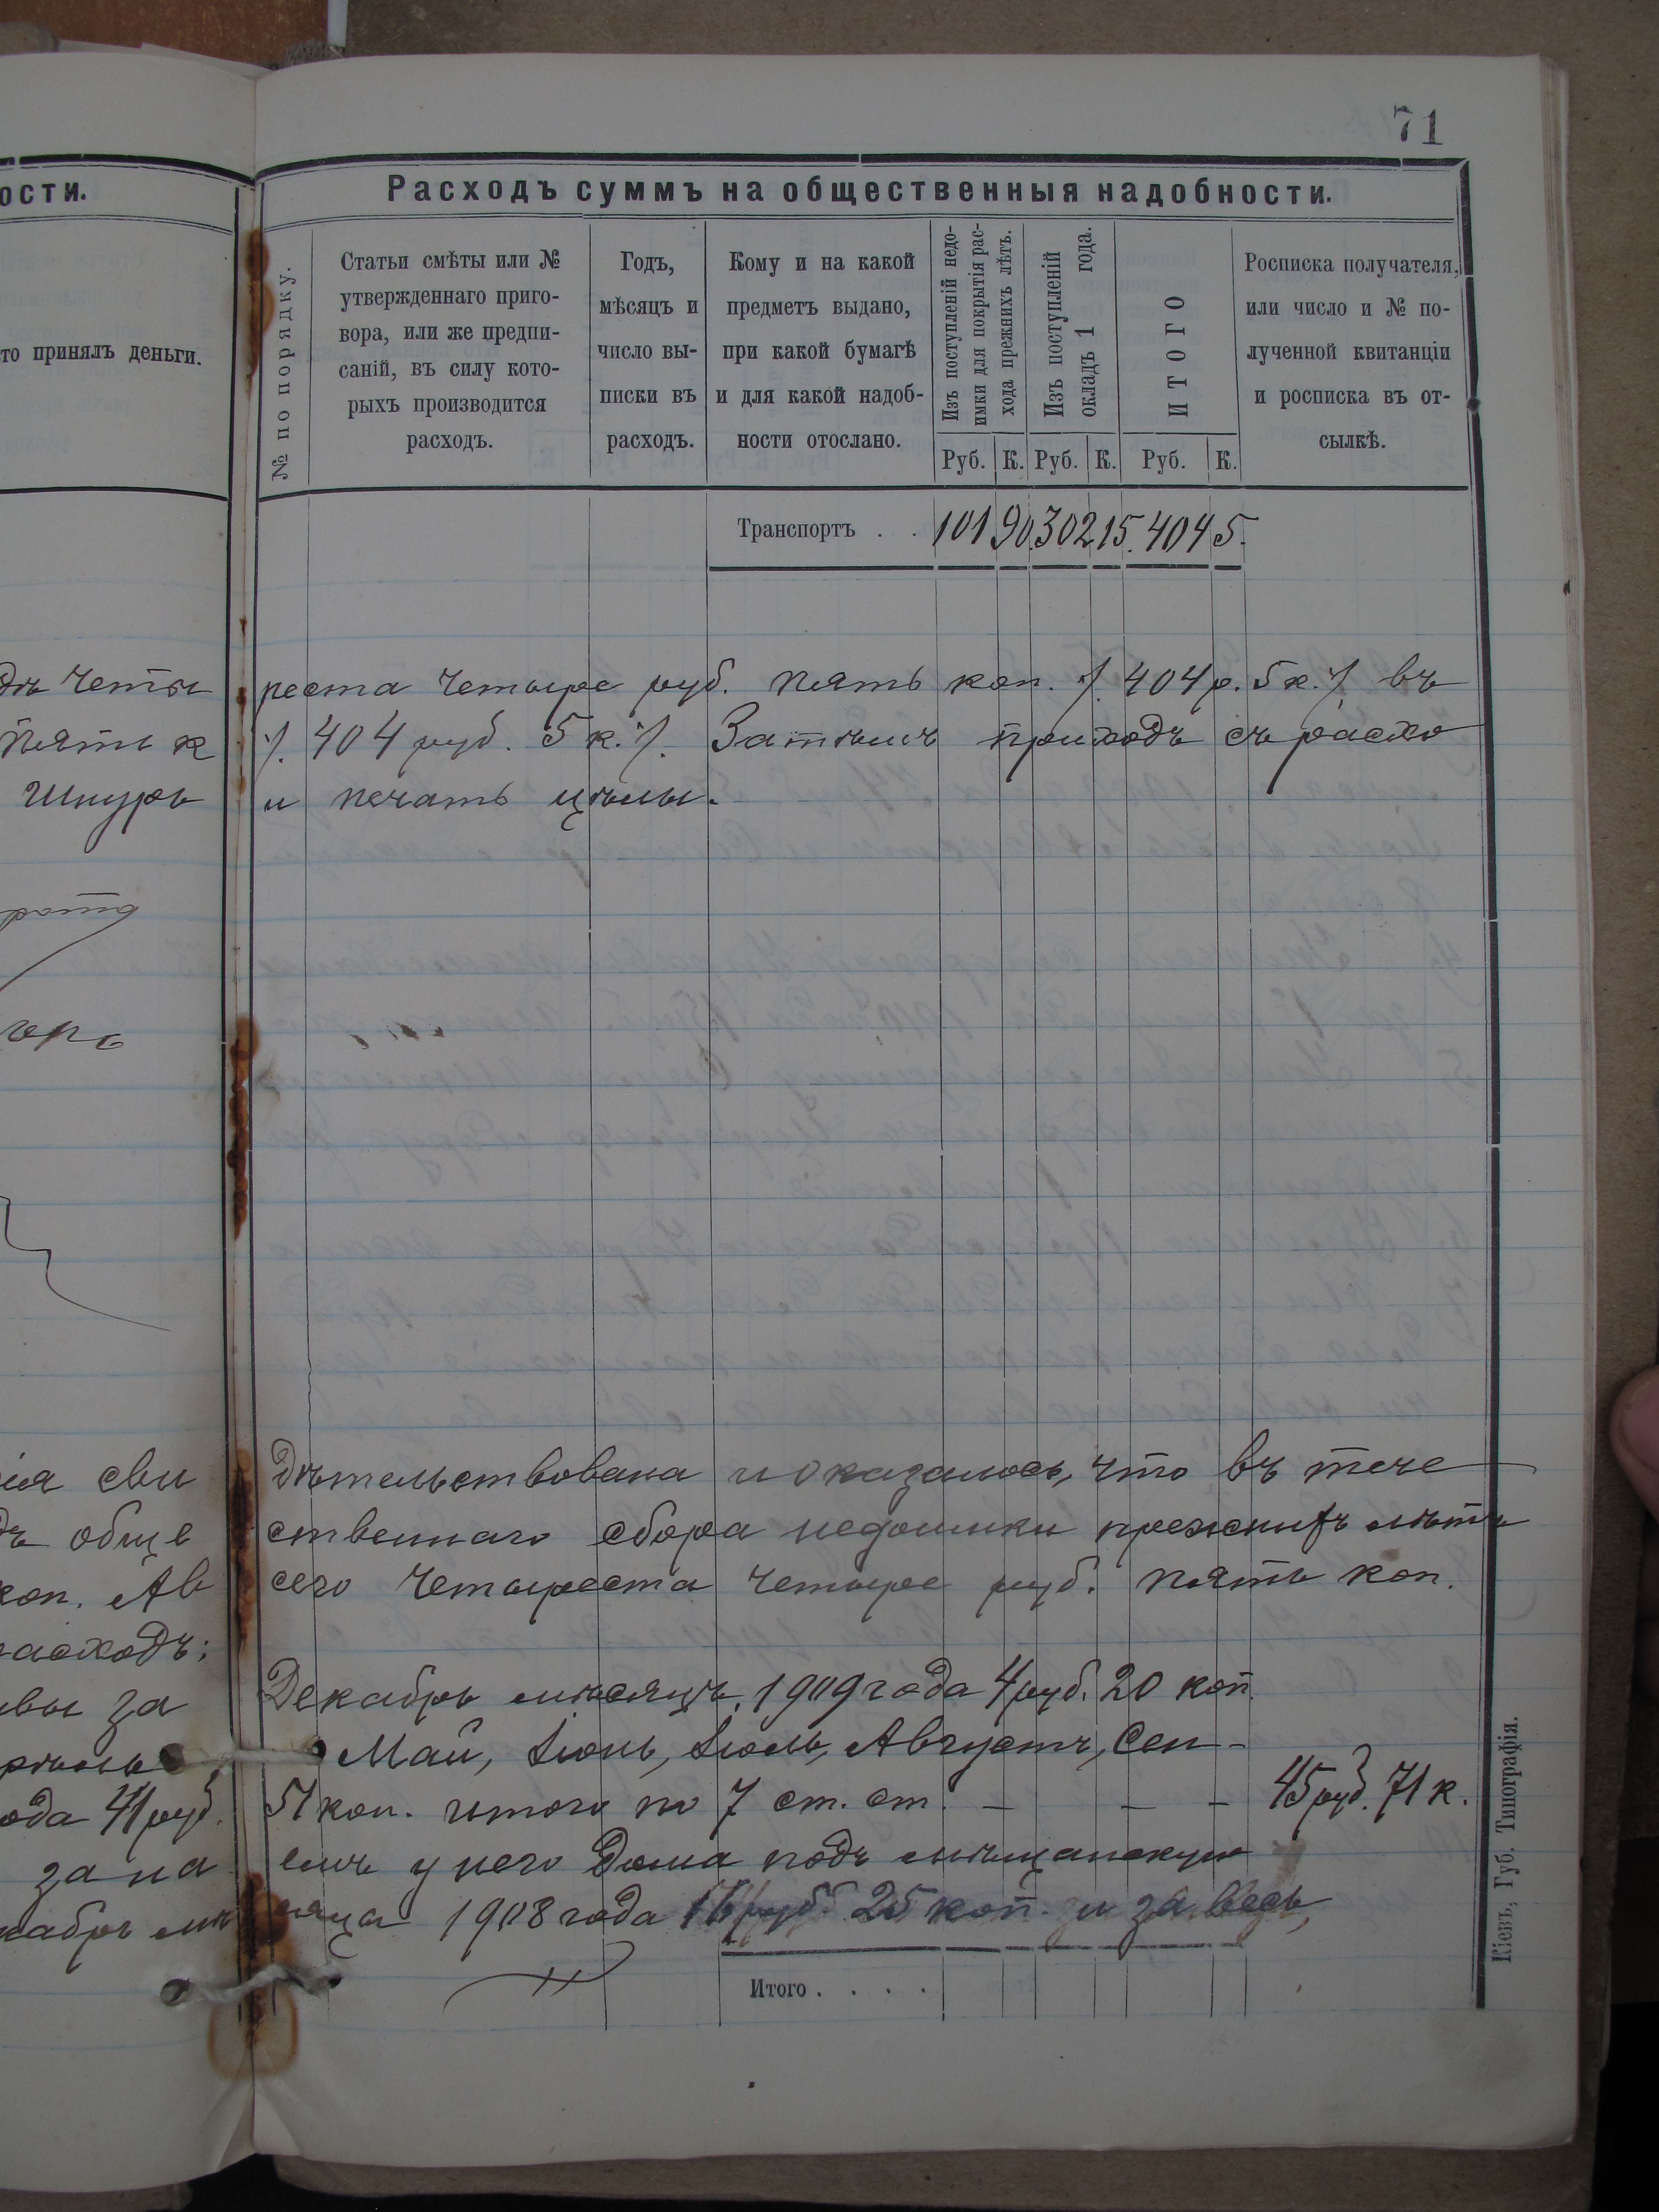 71
ости.
то принялъ деньги.
Расходъ суммъ на общественныя надобности.
№ по порядку.
Статьи смѣты или №
утвержденнаго приго-
вора, или же предпи-
саній, въ силу кото-
рыхъ производится
расходъ.
Годъ,
мѣсяцъ и
число вы-
писки въ
расходъ.
Кому и на какой
предметъ выдано,
при какой бумагѣ
и для какой надоб-
ности отослано.
Изъ поступленій недо-
имки для покрытія рас-
хода прежнихъ лѣтъ.
Изъ поступленій
окладъ 1 года.
ИТОГО
Руб. К. Руб. К. Руб. К.
Росписка получателя,
или число и № по-
лученной квитанціи
и росписка въ от-
сылкѣ.
Транспортъ . . 101 90. 302 15. 404 5.
дъ четы реста четыре руб. пять коп. ./. 404 р. 5 к. ./. въ
пять к ./. 404 руб. 5 к. ./. Затѣмъ приходъ съ расхо
Шнуръ и печать цѣлы.
ія сви дѣтельствована и оказалось, что въ тече
ъ обще ственнаго сбора недоимки прежнихъ лѣтъ
коп. Ав сего четыреста четыре руб. пять коп.
расходъ:
вы за Декабрь мѣсяцъ, 1909 года 4 руб. 20 коп.
Май, Іюнь, Іюль, Августъ, Сен-
ода 41 руб. 51 коп. итого по 7 ст. см. — — — 45 руб. 71 к.
за на емъ у него дома подъ мѣщанскую
кабрь мѣ сяца 1908 года 16 руб. 25 коп. и за весь
Итого . . . .
Кіевъ, Губ. Типографія.